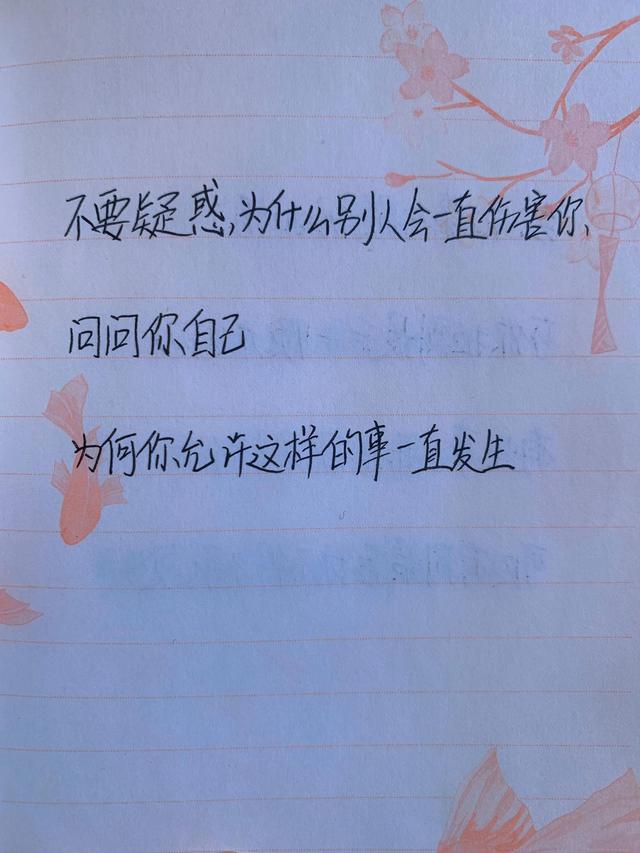 不要疑惑,为什么别人会一直伤害你,
问问你自己
为何你允许这样的事一直发生